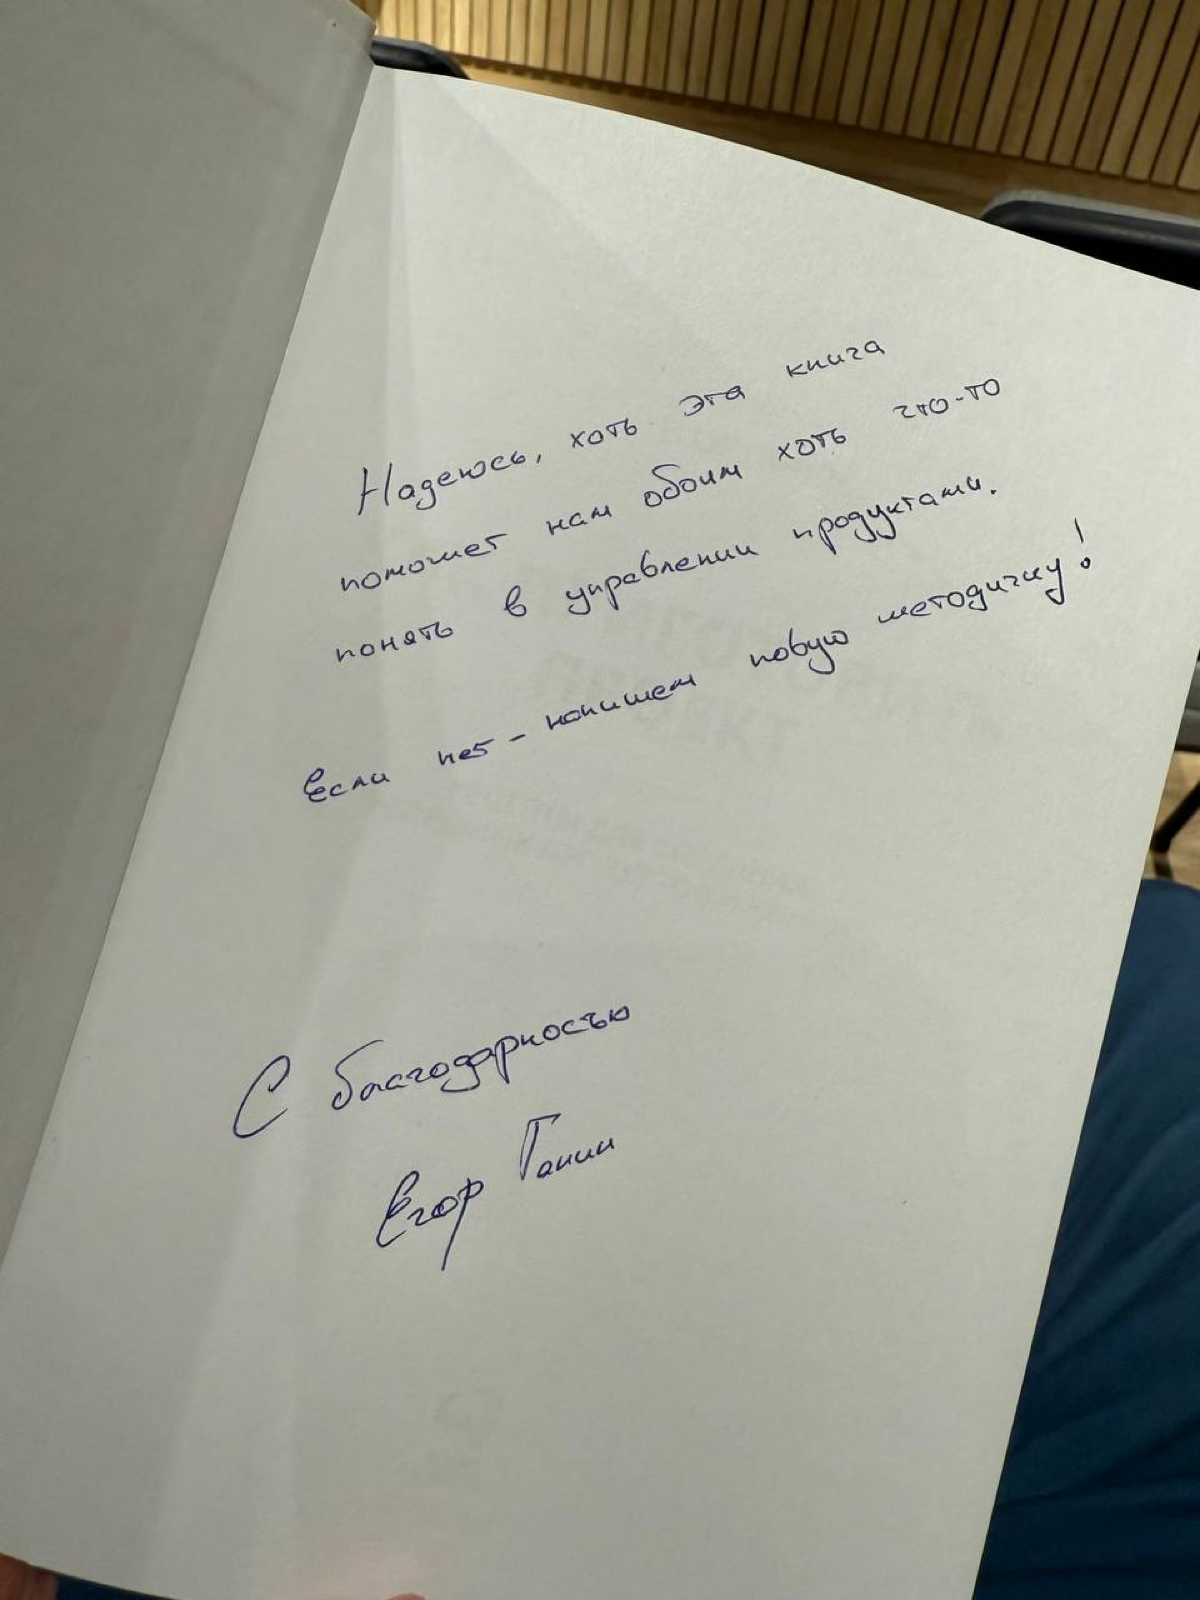 Надеюсь, хоть эта книга
поможет нам обоим хоть что-то
понять в управлении продуктами.
Если нет - напишем новую методичку!
С благодарностью
Егор Ганин